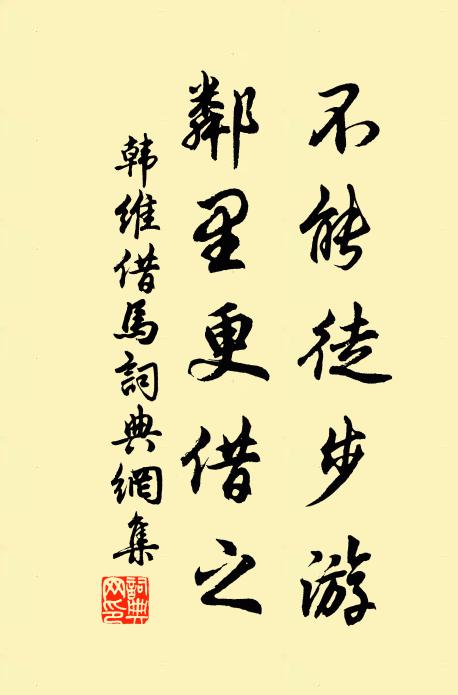 不能徒步游
鄰里更借之
韩维借馬詞典網集
詞典网印